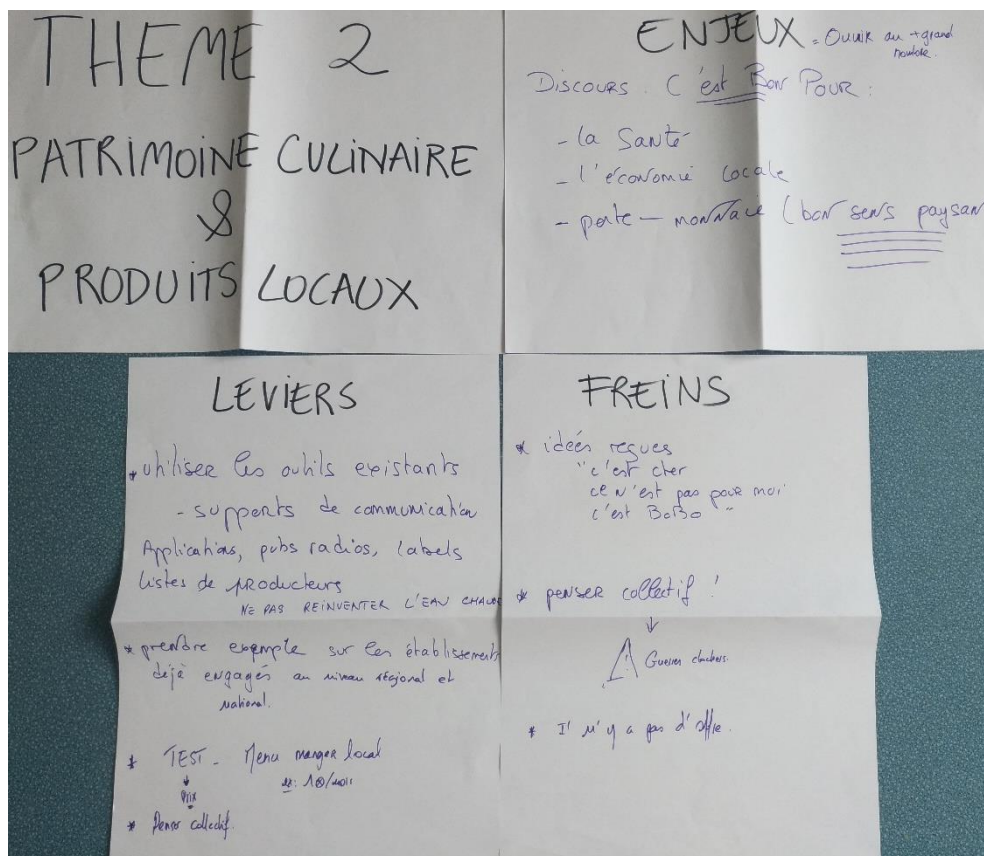 THEME 2
PATRIMOINE CULINAIRE
&
PRODUITS LOCAUX
ENJEUX = Ouvrir au + grand
nombre.
Discours. C'est Bon Pour :
- la Santé
- l'économie locale
- porte-monnaie (bon sens paysan
LEVIERS
* utiliser les outils existants
- supports de communication
Applications, pubs radios, labels
listes de producteurs
NE PAS REINVENTER L'EAU CHAUDE
* prendre exemple sur les établissements
déjà engagés au niveau régional et
national.
* TEST - Menu manger local
ex: 1 /mois
Prix
* Penser collectif.
FREINS
* idées reçues
"c'est cher
ce n'est pas pour moi
c'est BoBo "
* penser collectif !
Guerres clochers.
* Il n'y a pas d'offre.